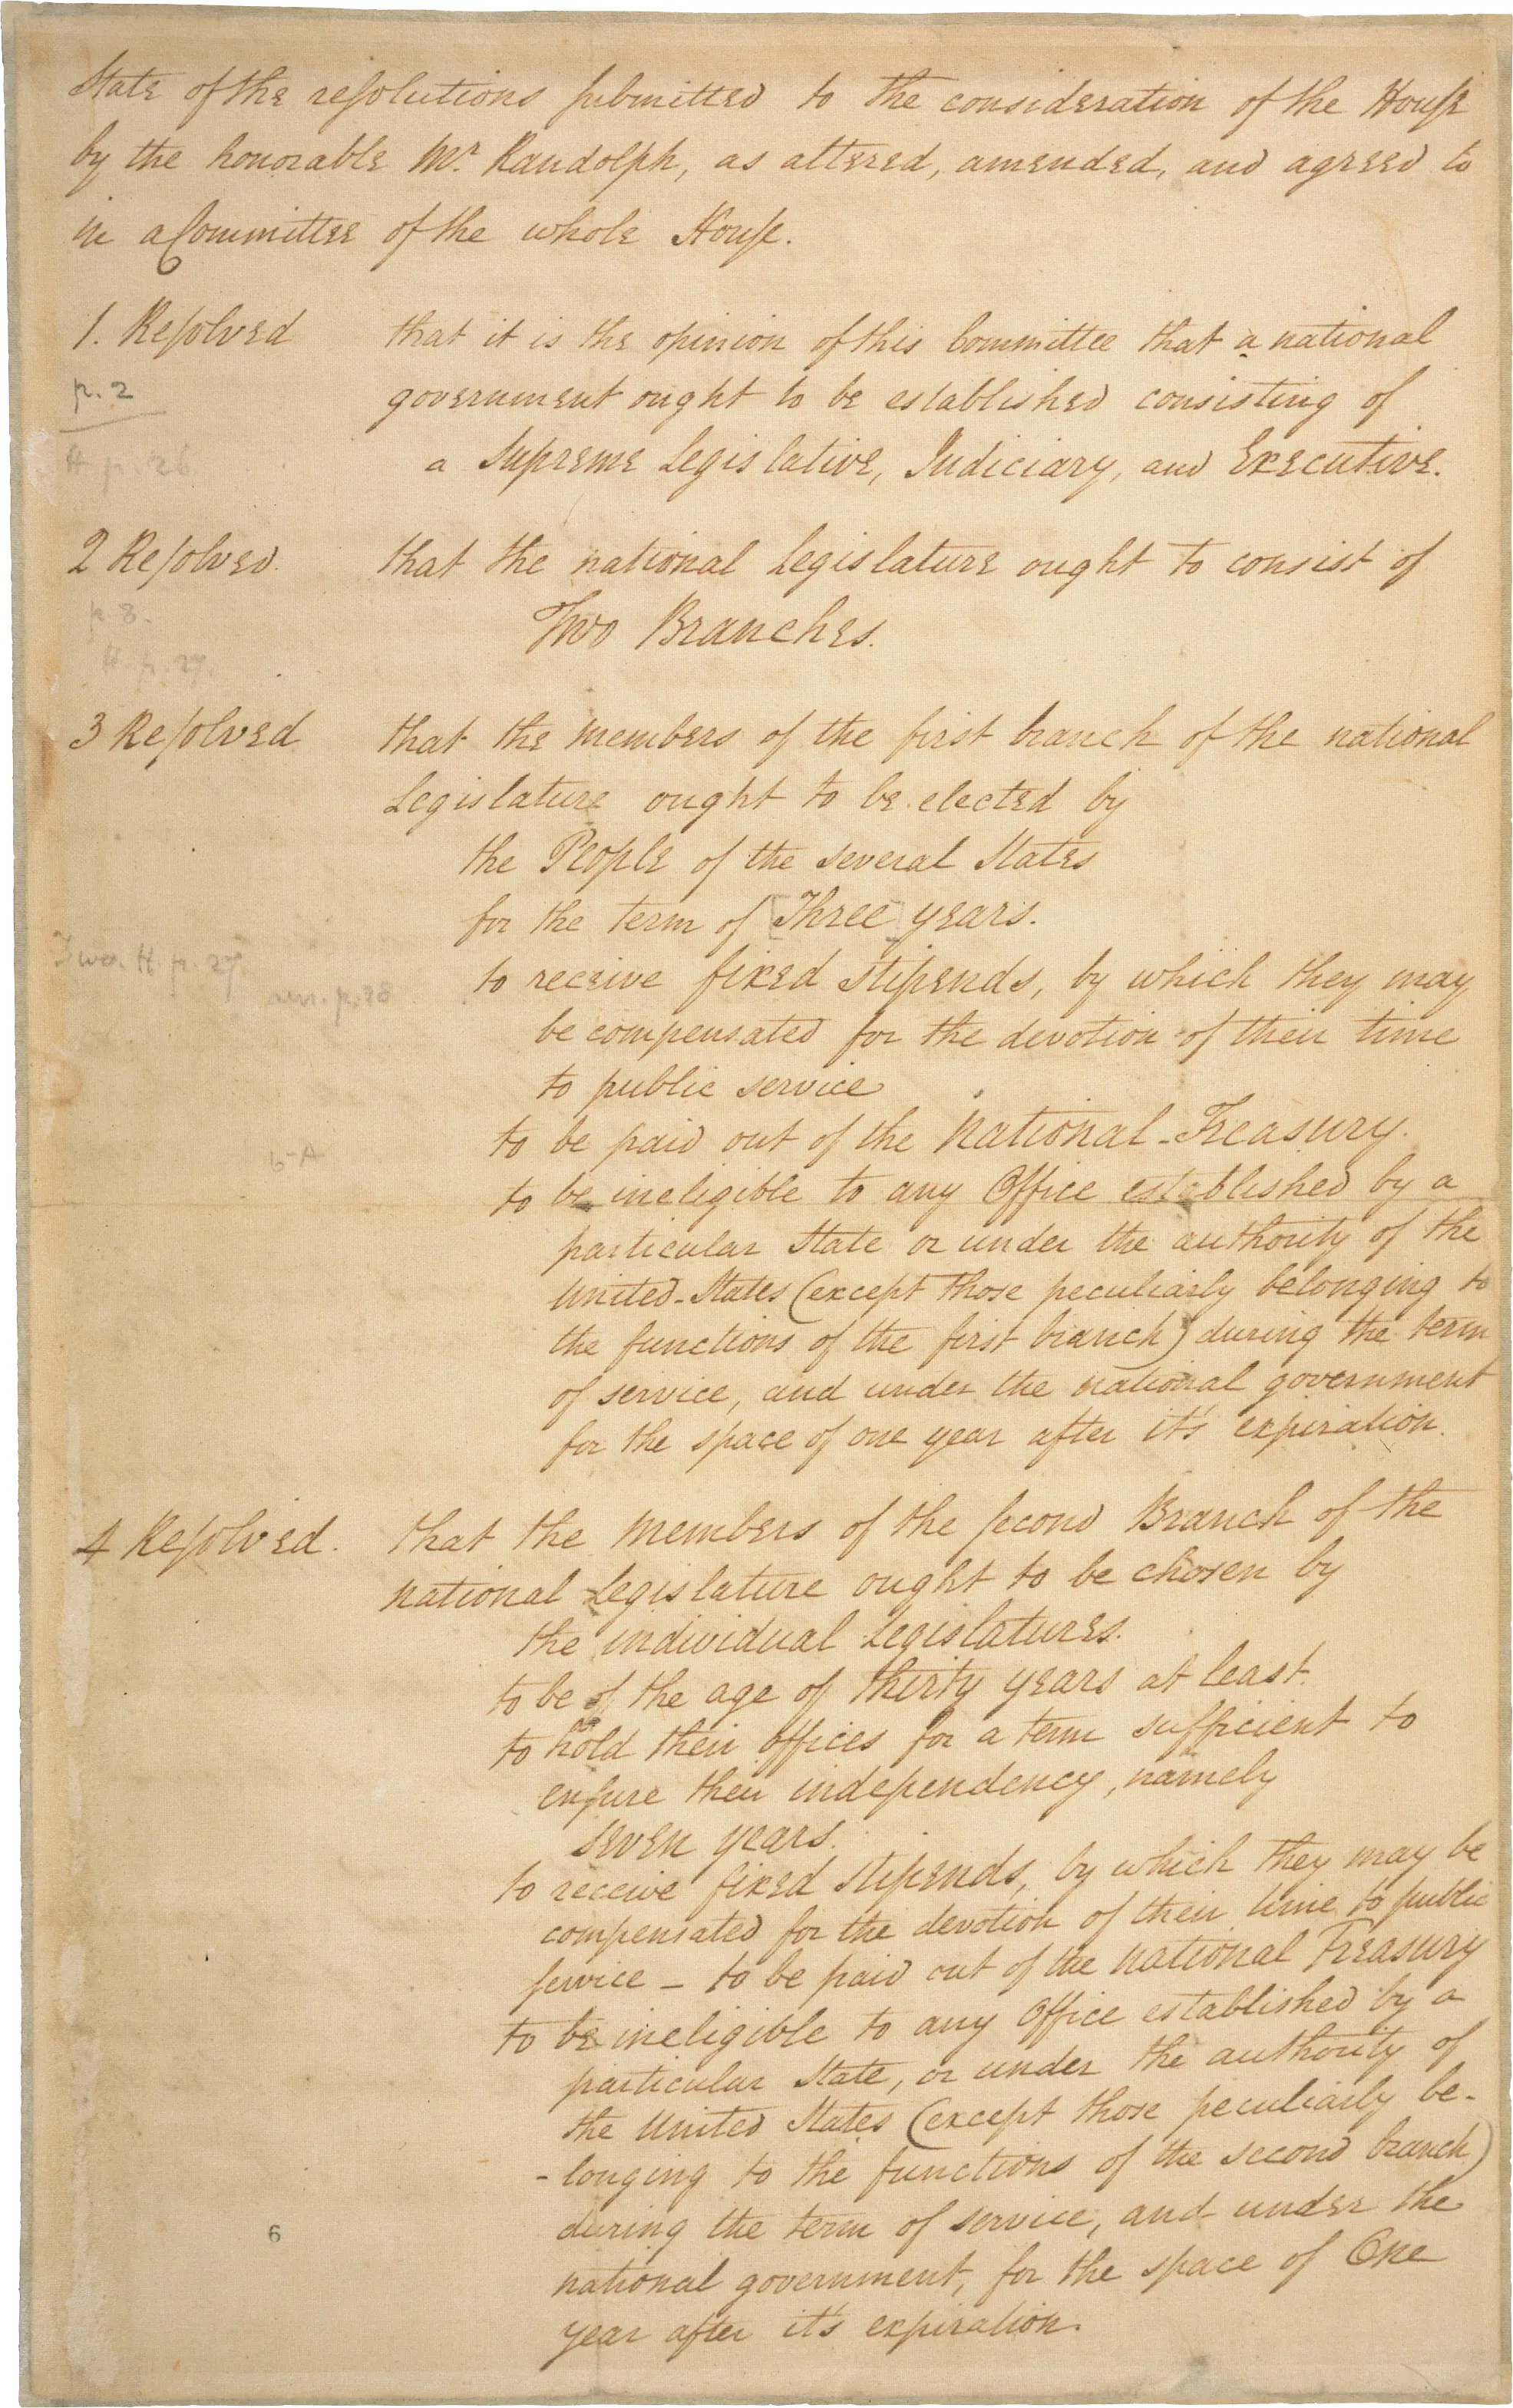 State of the resolutions submitted to the consideration of the House
by the honorable Mr. Randolph, as altered, amended, and agreed to
in a Committee of the whole House.
1. Resolved that it is the opinion of this Committee that a national
p. 2
government ought to be established consisting of
H p. 26.
a Supreme Legislative, Judiciary, and Executive.
2 Resolved. that the national Legislature ought to consist of
p. 8.
Two Branches.
H. p. 27.
3 Resolved that the members of the first branch of the national
Legislature ought to be elected by
the People of the several States
for the term of [Three] years.
H. p. 27.
p. 28
to receive fixed stipends, by which they may
be compensated for the devotion of their time
to public service
to be paid out of the National-Treasury.
6-A
to be ineligible to any Office established by a
particular State or under the authority of the
United-States (except those peculiarly belonging to
the functions of the first branch) during the term
of service, and under the national government
for the space of one year after it's expiration.
4 Resolved. that the Members of the second Branch of the
national Legislature ought to be chosen by
the individual Legislatures.
to be of the age of thirty years at least.
to hold their offices for a term sufficient to
ensure their independency, namely
seven years.
to receive fixed stipends, by which they may be
compensated for the devotion of their time to public
service - to be paid out of the National Treasury
to be ineligible to any Office established by a
particular State, or under the authority of
the United States (except those peculiarly be-
-longing to the functions of the second branch)
during the term of service, and under the
6
national government, for the space of One
year after it's expiration.